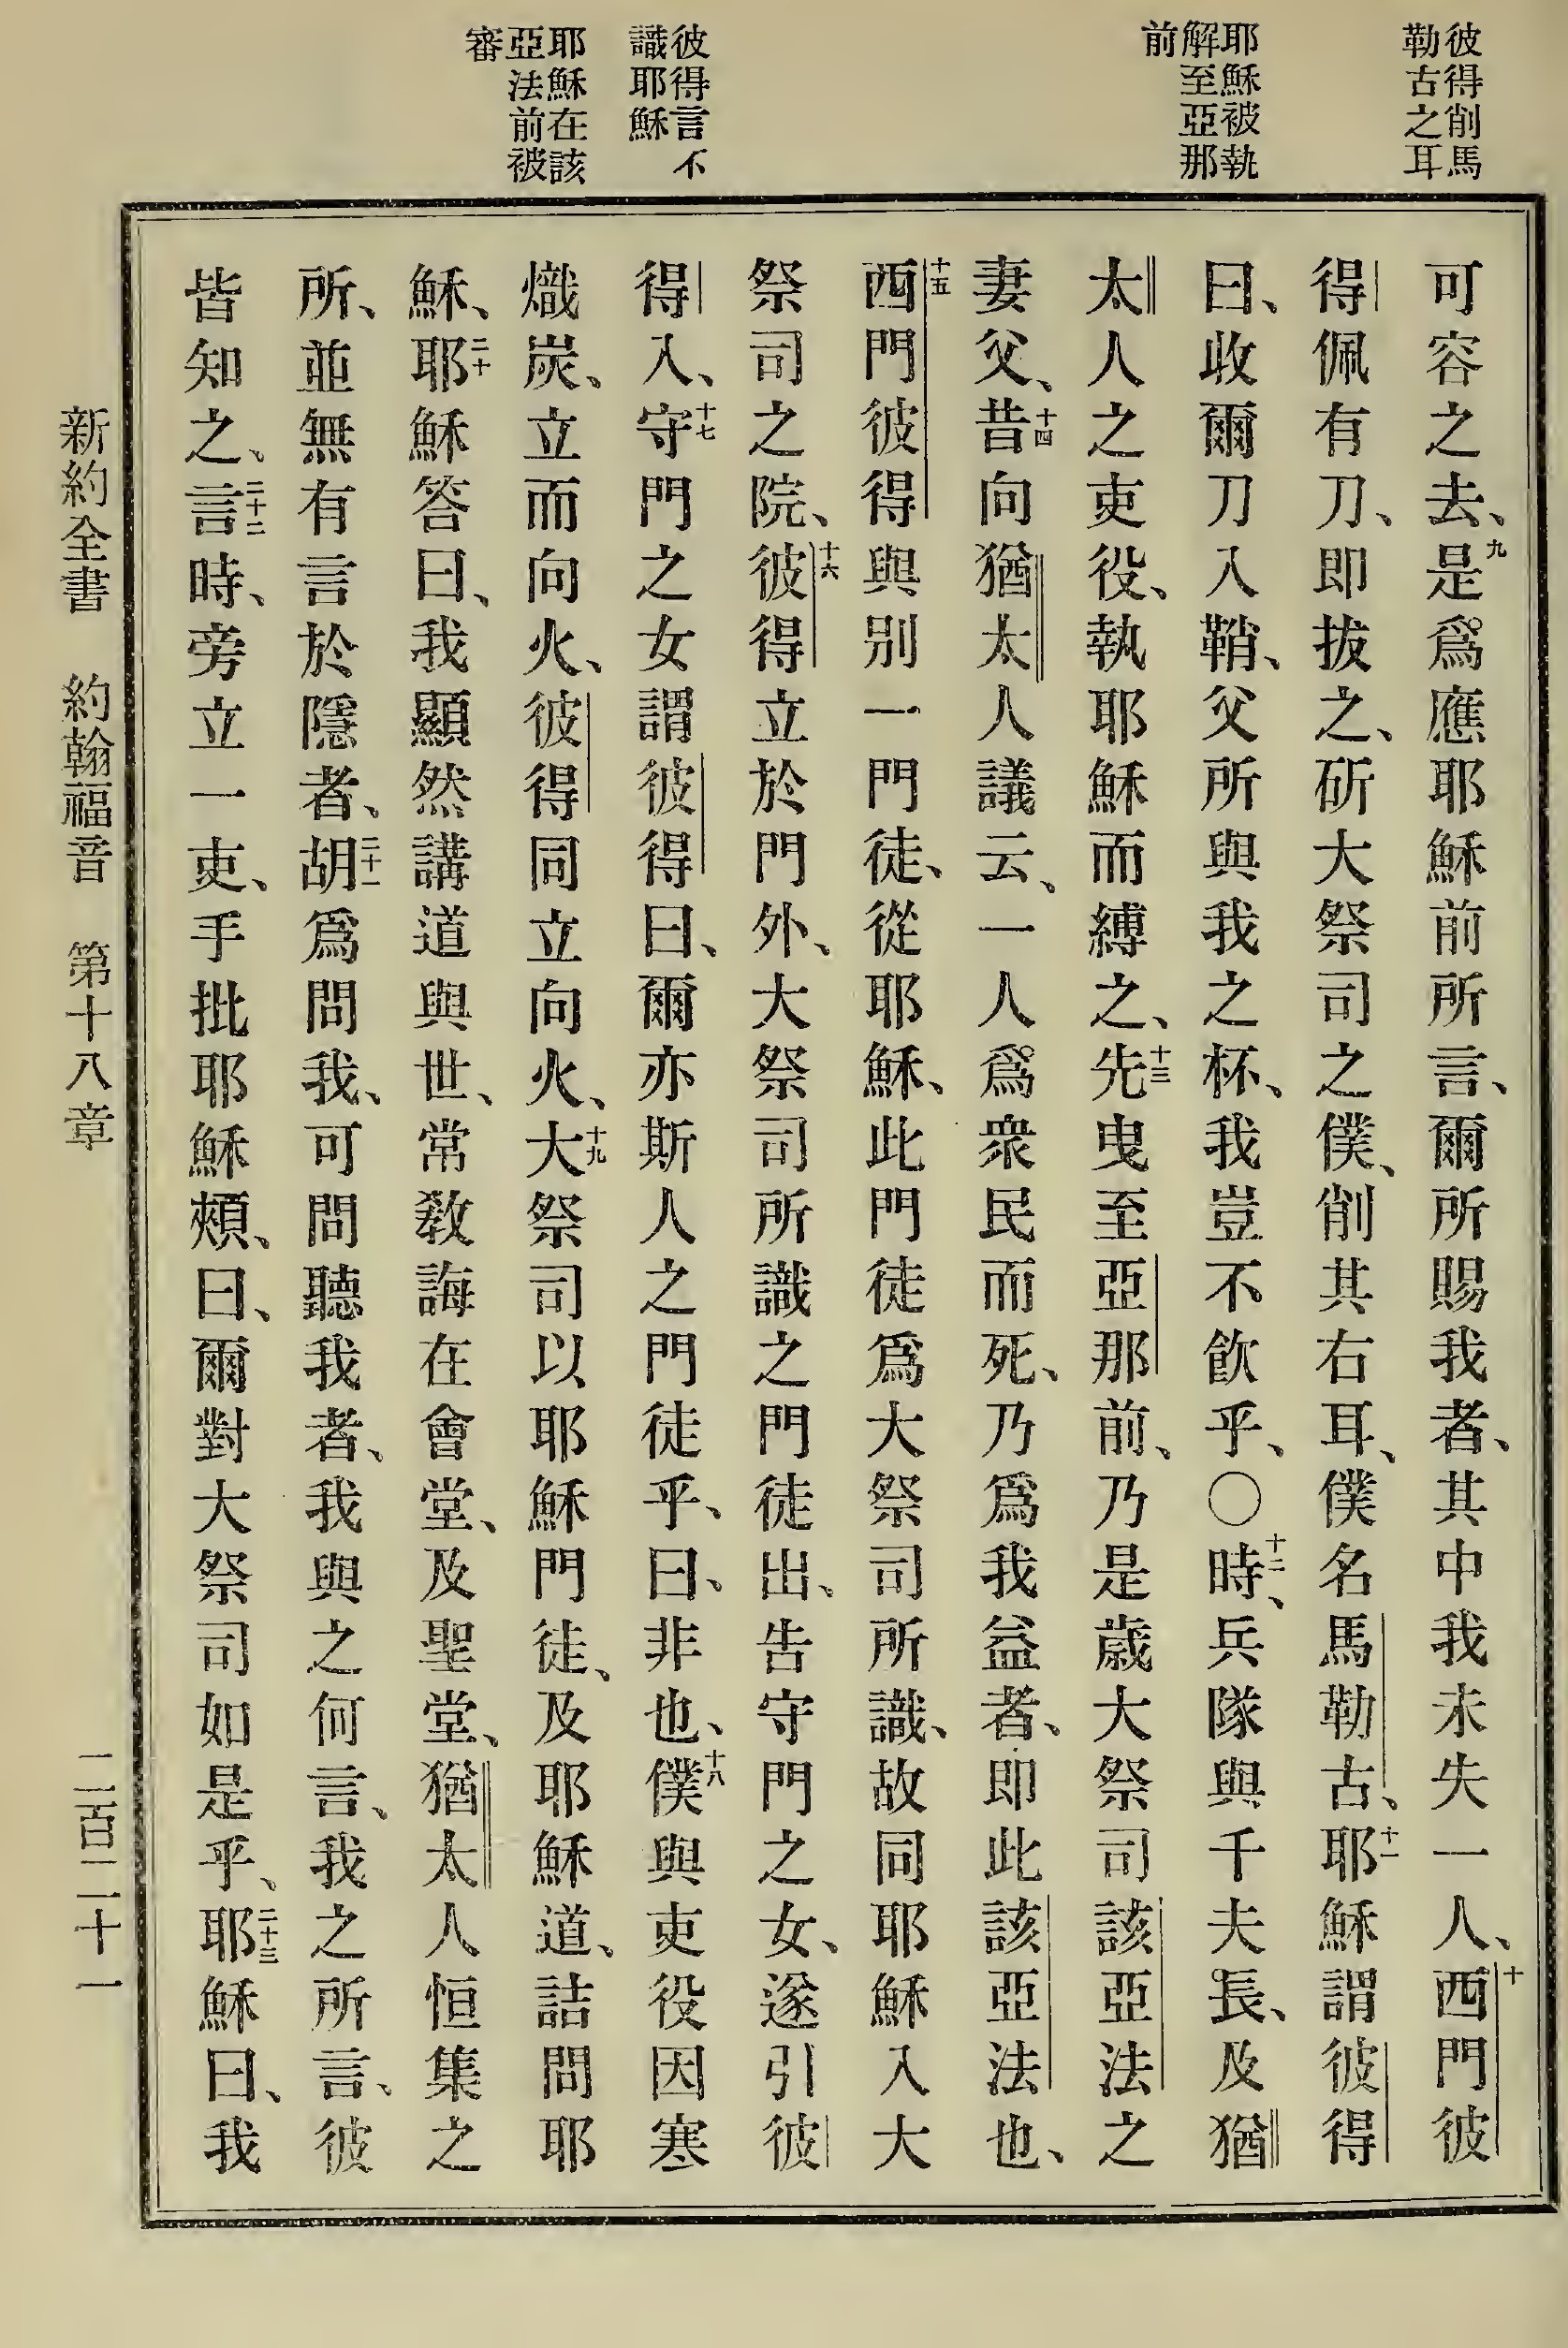 彼得削馬
勒古之耳
耶穌被執
解至亞那
前
彼得言不
識耶穌
耶穌在該
亞法前被
審
可容之去、九是爲應耶穌前所言、爾所賜我者、其中我未失一人、十西門彼
得佩有刀、即拔之、斫大祭司之僕、削其右耳、僕名馬勒古、十一耶穌謂彼得
曰、收爾刀入鞘、父所與我之杯、我豈不飲乎、〇十二時、兵隊與千夫長、及猶
太人之吏役、執耶穌而縛之、十三先曳至亞那前、乃是歲大祭司該亞法之
妻父、十四昔向猶太人議云、一人爲衆民而死、乃爲我益者、即此該亞法也、
十五西門彼得與別一門徒、從耶穌、此門徒爲大祭司所識、故同耶穌入大
祭司之院、十六彼得立於門外、大祭司所識之門徒出、告守門之女、遂引彼
得入、十七守門之女謂彼得曰、爾亦斯人之門徒乎、曰、非也、十八僕與吏役因寒
熾炭、立而向火、彼得同立向火、十九大祭司以耶穌門徒、及耶穌道、詰問耶
穌、二十耶穌答曰、我顯然講道與世、常教誨在會堂、及聖堂、猶太人恒集之
所、並無有言於隱者、二十一胡爲問我、可問聽我者、我與之何言、我之所言、彼
皆知之、二十二言時、旁立一吏、手批耶穌頰、曰、爾對大祭司如是乎、二十三耶穌曰、我
新約全書 約翰福音 第十八章 二百二十一